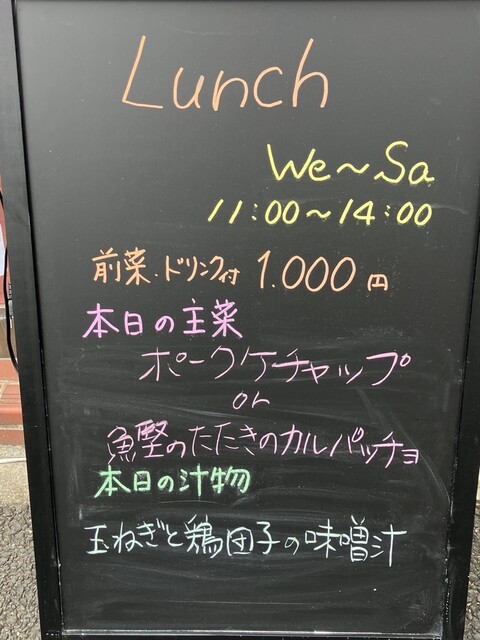 Lunch
We～Sa
11:00～14:00
前菜・ドリンク付 1.000円
本日の主菜
ポークケチャップ
or
鰹のたたきのカルパッチョ
本日の汁物
玉ねぎと鶏団子の味噌汁